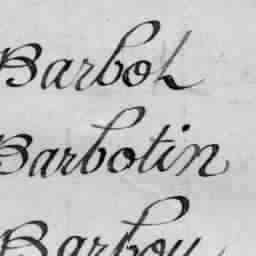 Barbot
Barbotin
Barbou